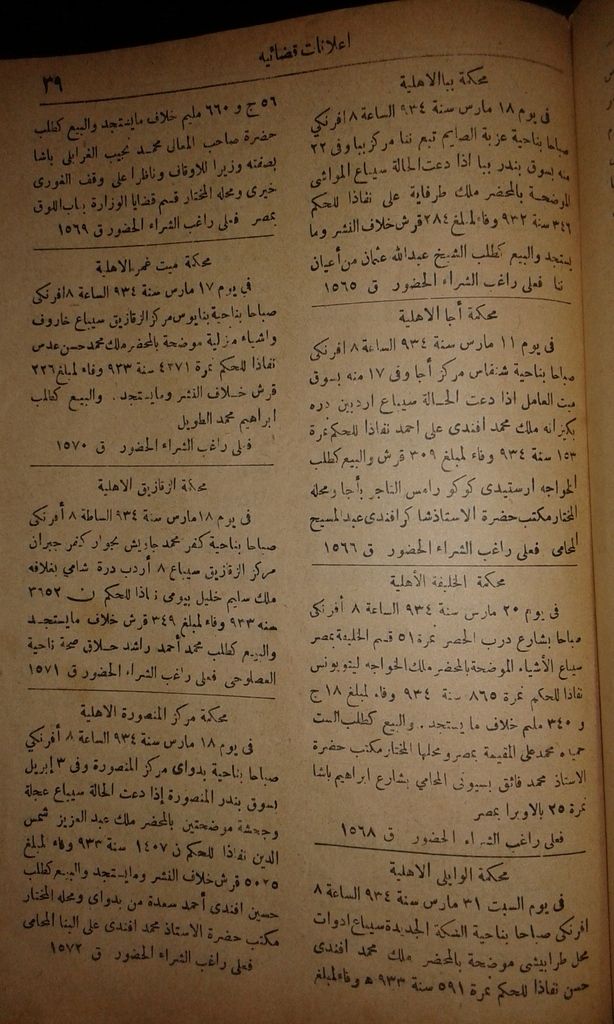 اعلانات قضائيه
٣٩
محكمة ببا الاهلية
فى يوم ١٨ مارس سنة ٩٣٤ الساعة ٨ افرنكي
صباحا بناحية عزبة الصايم تبع ننا مركز ببا وفى ٢٢
منه بسوق بندر ببا اذا دعت الحالة سيباع المواشى
الموضحة بالمحضر ملك طرفاية على نفاذا للحكم
٣٤٦ سنة ٩٣٢ وفاء لمبلغ ٢٨٤ قرش خلاف النشر وما
يستجد والبيع كطلب الشيخ عبدالله عثمان من أعيان
ننا فعلى راغب الشراء الحضور ق ١٥٦٥
محكمة أجا الاهلية
فى يوم ١١ مارس سنة ٩٣٤ الساعة ٨ افرنكى
صباحا بناحية شنفاس مركز أجا وفى ١٧ منه بسوق
ميت العامل اذا دعت الحالة سيباع اردبين دره
بكيزانه ملك محمد أفندى على احمد نفاذا للحكم نمرة
١٥٣ سنة ٩٣٤ وفاء لمبلغ ٣٠٩ قرش والبيع كطلب
الخواجه ارستيدى كوكو رامس التاجر بأجا ومحله
المختار مكتب حضرة الاستاذ شاكر افندى عبد المسيح
المحامى فعلى راغب الشراء الحضور ق ١٥٦٦
محكمة الخليفة الأهلية
فى يوم ٢٠ مارس سنة ٩٣٤ الساعة ٨ أفرنكى
صباحا بشارع درب الحصر نمرة ٥١ قسم الخليفة بمصر
سيباع الأشياء الموضحة بالمحضر ملك الخواجه ليتو يونس
نفاذا للحكم نمرة ٨٦٥ سنة ٩٣٤ وفاء لمبلغ ١٨ ج
و ٣٤٠ مليم خلاف ما يستجد . والبيع كطلب الست
محمد على المقيمة بمصر ومحلها المختار مكتب حضرة
الاستاذ محمد فائق بسيونى المحامي بشارع ابراهيم باشا
نمرة ٢٥ بالاوبرا بمصر
فعلى راغب الشراء الحضور ق ١٥٦٨
محكمة الوايلى الاهلية
فى يوم السبت ٣١ مارس سنة ٩٣٤ الساعة ٨
افرنكى صباحا بناحية السكة الجديدة سيباع ادوات
محل طرابيشى موضحة بالمحضر ملك محمد افندى
حسن نفاذا للحكم نمرة ٥٩١ سنة ٩٣٣ وفاء لمبلغ
٥٦ ج و ٦٦٠ مليم خلاف مايستجد والبيع كطلب
حضرة صاحب المعالى محمد نجيب الغرابلى باشا
بصفته وزيرا للاوقاف وناظرا على وقف الغورى
خيرى ومحله المختار قسم قضايا الوزارة بباب اللوق
بمصر فعلى راغب الشراء الحضور ق ١٥٦٩
محكمة ميت غمر الاهلية
في يوم ١٧ مارس سنة ٩٣٤ الساعة ٨ افرنكى
صباحا بناحية بنايوس مركز الزقازيق سيباع خاروف
واشياء منزلية موضحة بالمحضر ملك محمد حسن عدس
نفاذا للحكم نمرة ٤٢٧١ سنة ٩٣٣ وفاء لمبلغ ٢٢٦
قرش خلاف النشر ومايستجد . والبيع كطلب
ابراهيم محمد الطويل
فعلى راغب الشراء الحضور ق ١٥٧٠
محكمة الزقازيق الاهلية
فى يوم ١٨ مارس سنة ٩٣٤ الساعة ٨ أفرنكى
صباحا بناحية كفر محمد جاويش بجوار كفر جبران
مركز الزقازيق سيباع ٨ أردب درة شامى بغلافه
ملك سليم خليل بيومى نفاذا للحكم ن ٣٦٥٢
سنه ٩٣٣ وفاء لمبلغ ٣٤٩ قرش خلاف مايستجد
والبيع كطلب محمد أحمد راشد حلاق صحة ناحية
العصلوجى فعلى راغب الشراء الحضور ق ١٥٧١
محكمة مركز المنصورة الاهلية
فى يوم ١٨ مارس سنة ٩٣٤ الساعة ٨ أفرنكي
صباحا بناحية بدواى مركز المنصورة وفى ٣ ابريل
بسوق بندر المنصورة إذا دعت الحالة سيباع عجلة
وجحشة موضحتين بالمحضر ملك عبد العزيز شمس
الدين نفاذا للحكم ن ١٤٠٧ سنة ٩٣٣ وفاء لمبلغ
٥٠٢٥ قرش خلاف النشر ومايستجد والبيع كطلب
حسين افندى أحمد سعدة من بدواى ومحله المختار
مكتب حضرة الاستاذ محمد افندى على البنا المحامى
فعلى راغب الشراء الحضور ق ١٥٧٢